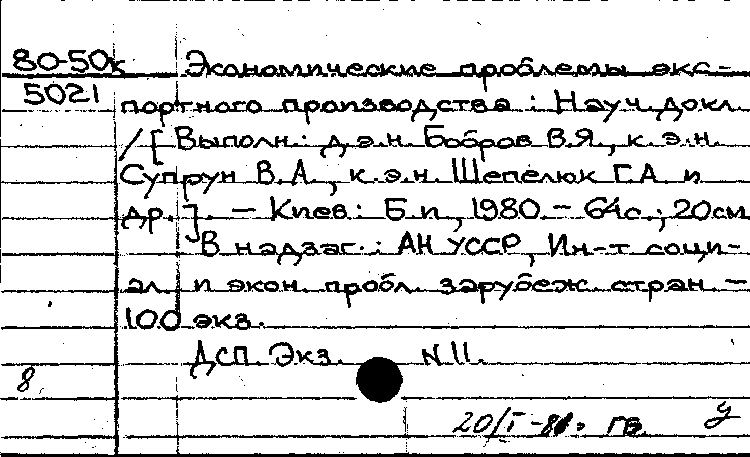 80-50к Экономические проблемы экс-
5021 портного производства : Науч. докл.
/ [ Выполн.: д.э.н. Бобров В.Я., к.э.н.
Супрун В.А., к.э.н. Шепелюк Г.А. и
др. ]. — Киев: Б.и, 1980. — 64с.; 20см
В надзаг.: АН УССР, Ин-т соци-
ал. и экон. пробл. зарубеж. стран. —
100 экз.
ДСП. Экз. N 11.
8
20/I-81. ГБ. У